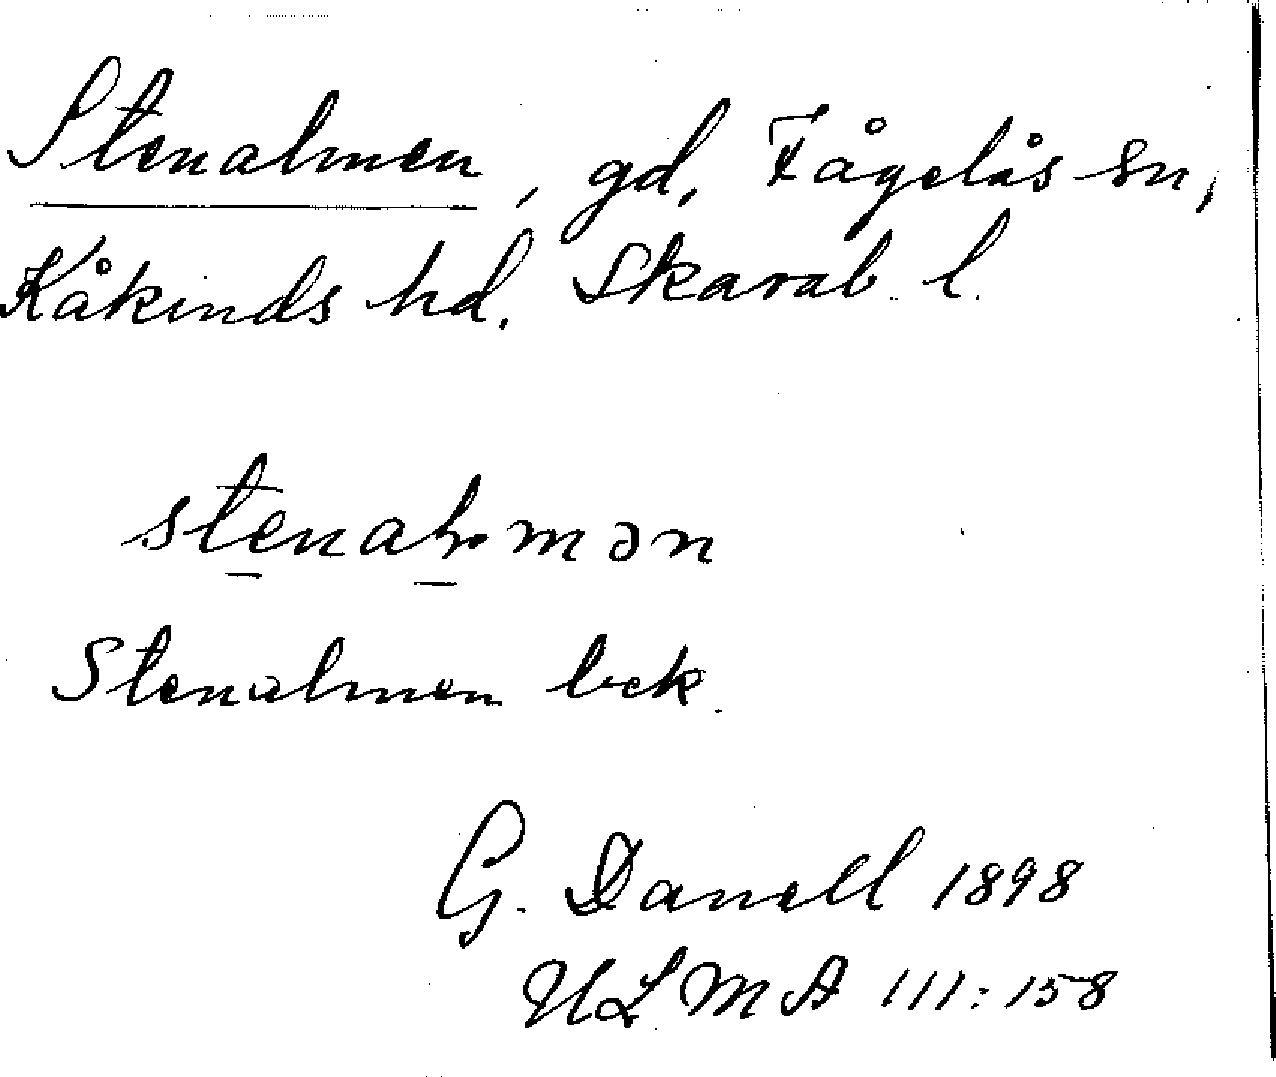 Stenalmen, gd, Fågelås sn,
Kåkinds hd. Skarab. l.
stenalmən
Stenalmen bek.
G. Danell 1898
ULMA 111:158